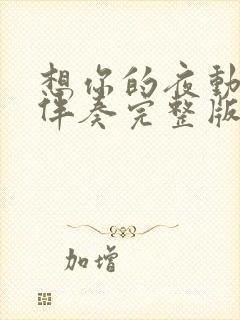 想你的夜動
伴奏完整版
加增